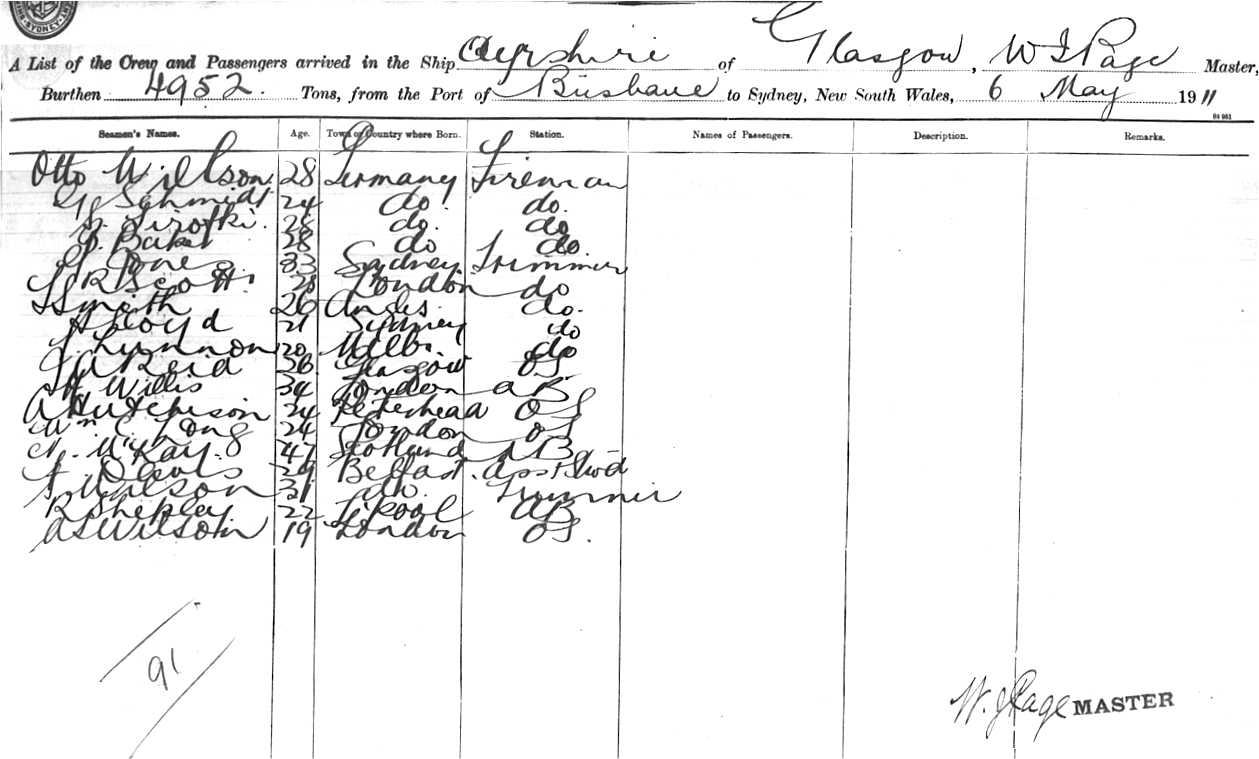 SYDNEY
A List of the Crew and Passengers arrived in the Ship Ayrshire of Glasgow, W J Page Master,
Burthen 4952. Tons, from the Port of Brisbane to Sydney, New South Wales, 6 May 1911
Seamen's Names. Age. Town or Country where Born. Station. Names of Passengers. Description. Remarks.
Otto Willson 28 Germany Fireman
G Schmidt 24 do. do.
do. do
Baker 28 do do
Jones 33 Sydney. Trimmer
R Scott 20 London do
Smith 26 do.
H Lloyd 21 Sydney do
Lynnon 20 Melb. do
Reid 26 Glasgow OS
Willis 34 London AB
A Hutchison 24 Peterhead OS
Wm C Long 24 London OS
McKay 47 Scotland AB
Davis 29 Belfast. Asst Stw'd
Wilson 31 do. Trimmer
R Shepley 22 L'pool AB
A S Wilson 19 London OS.
91
W. J Page MASTER